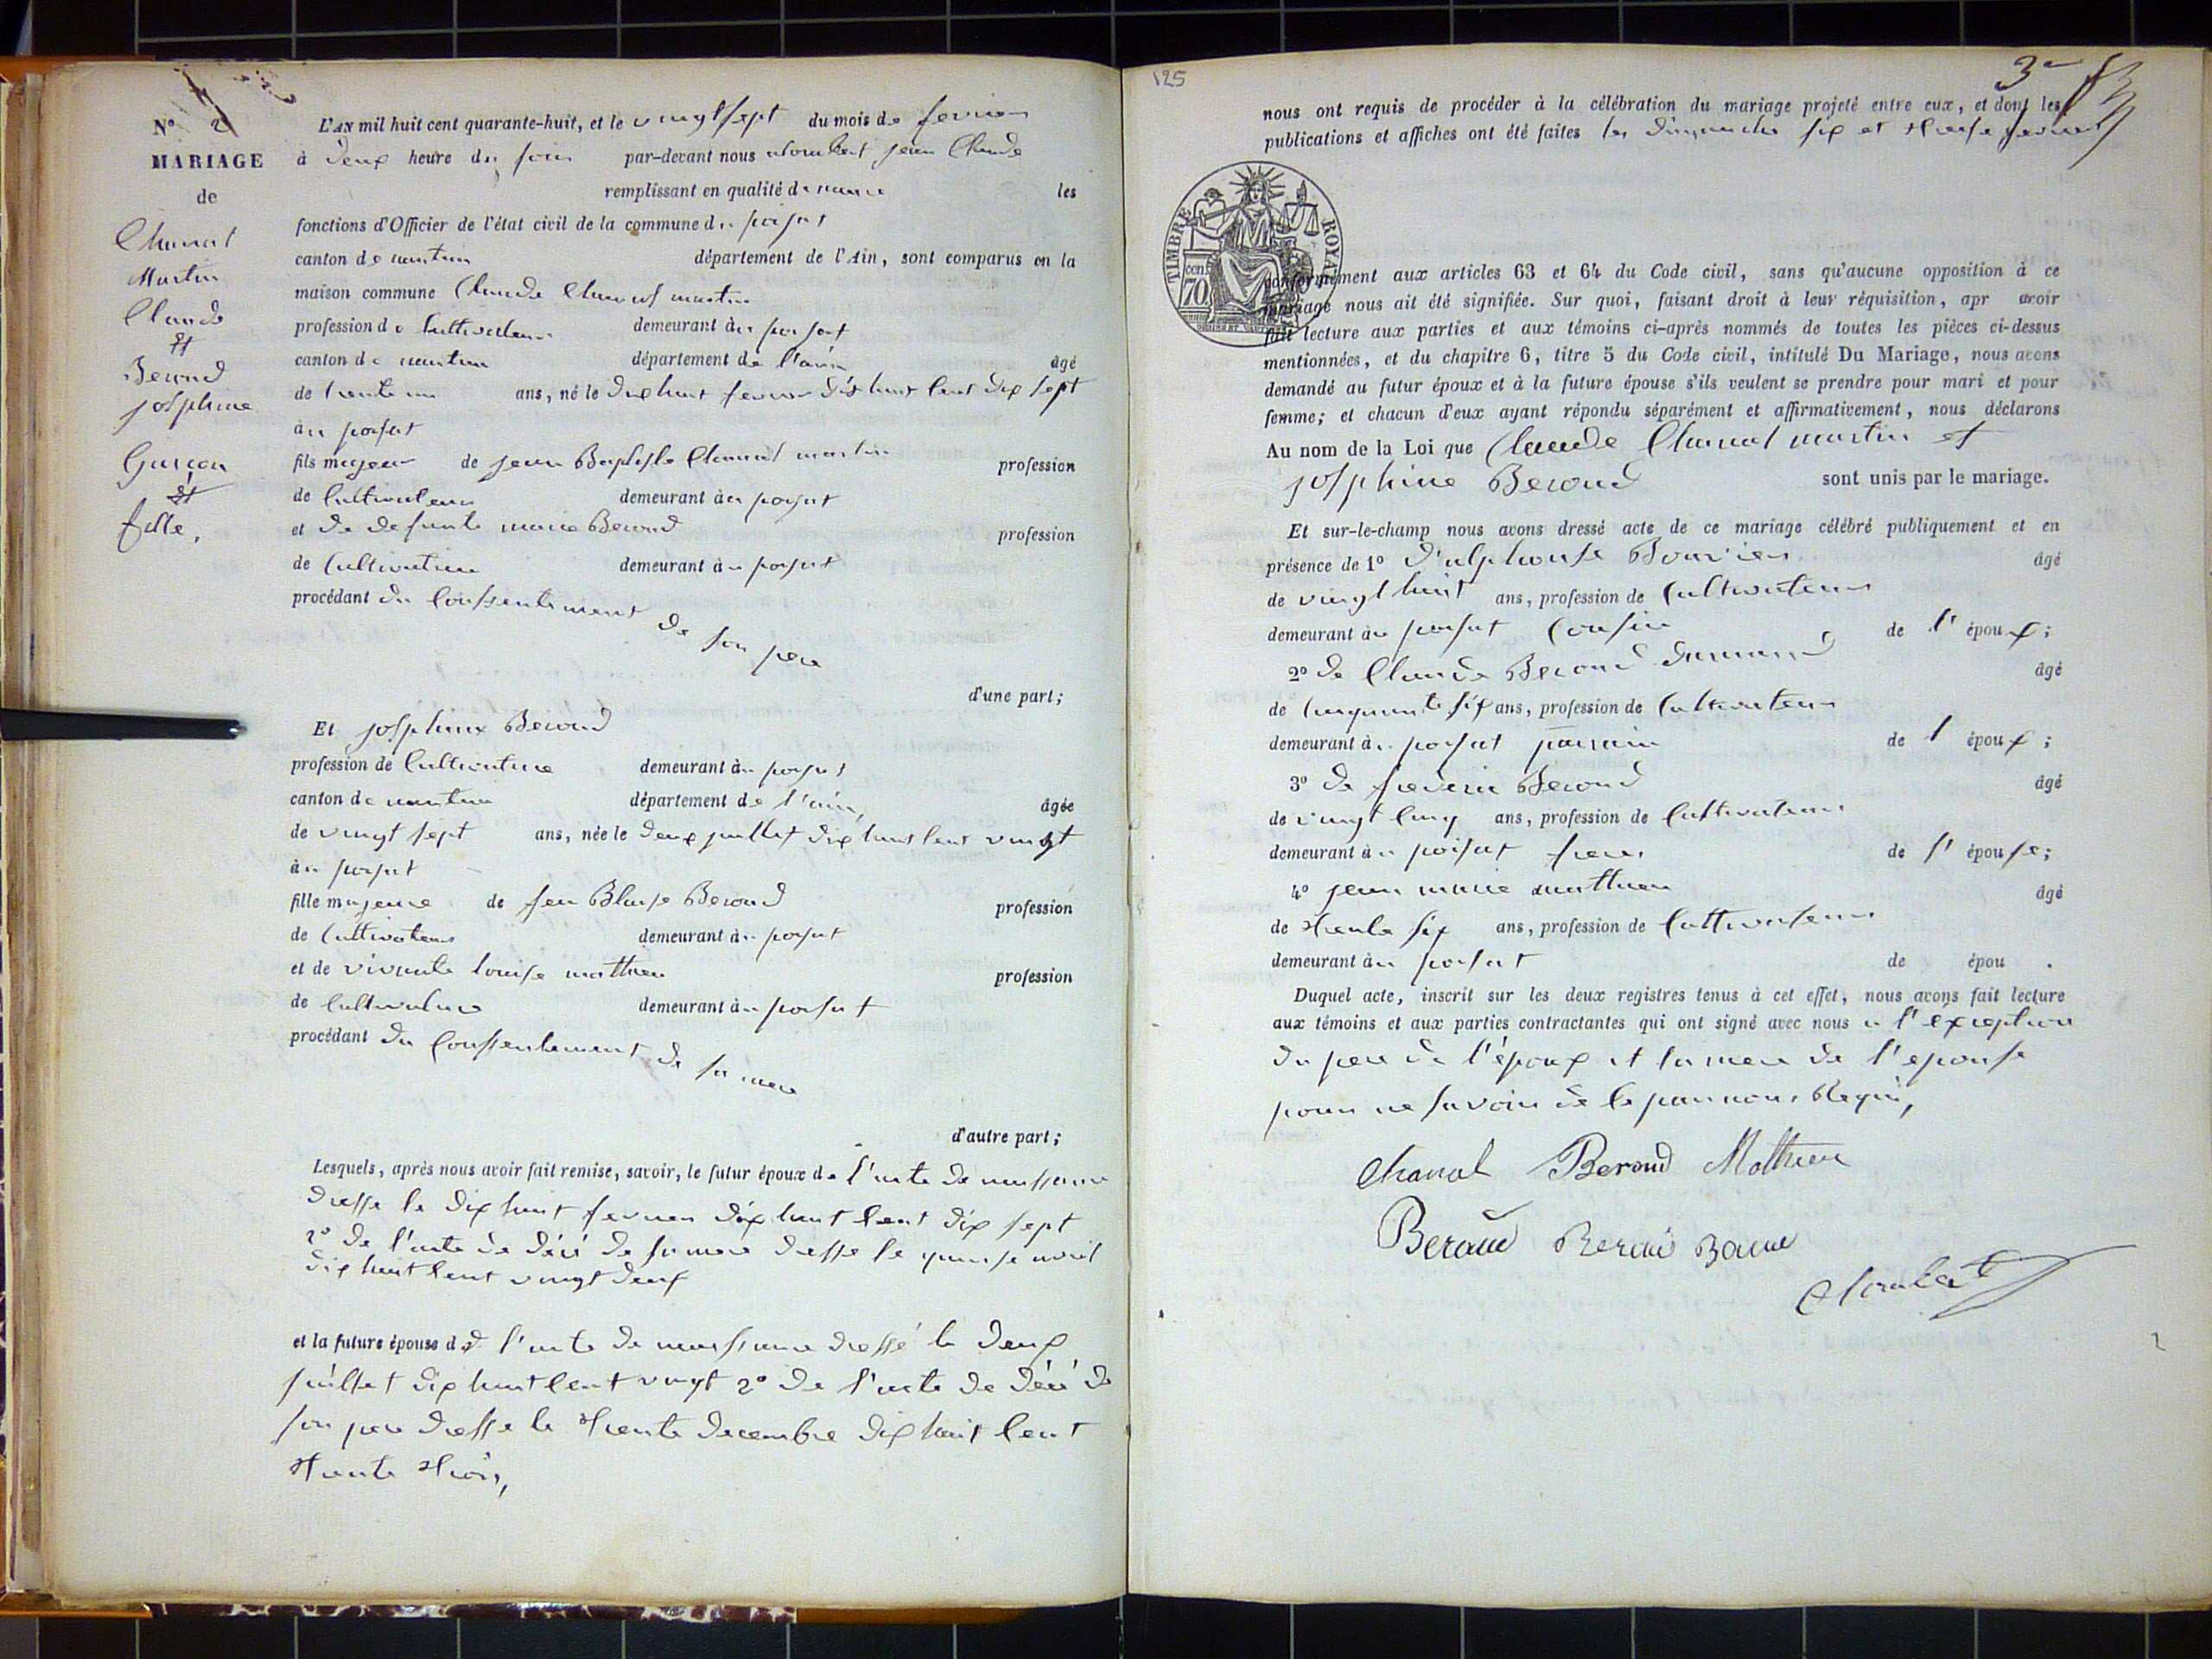 N° 2
MARIAGE
de
Chanal
Martin
Claude
Et
Beroud
josphine
Garcon
Et
fille,
L'AN mil huit cent quarante-huit, et le vingt sept du mois de fevrier
à deux heure du soir par-devant nous jean Claude
remplissant en qualité de maire les
fonctions d'Officier de l'état civil de la commune du poisat
canton de nantua département de l'Ain, sont comparus en la
maison commune Claude Chanal martin
profession de Cultivateur demeurant àu poisat
canton de nantua département de l'ain âgé
de trente un ans, né le dix huit fevrier dix huit Cent dix sept
àu poisat
fils majeur de jean Baptiste Chanal martin profession
de Cultivateur demeurant àu poisat
et de defunte marie Beroud profession
de Cultivatrice demeurant àu poisat
procédant du Consentement de son pere
d'une part;
Et josphine Beroud
profession de Cultivatrice demeurant àu poisat
canton de nantua département de l'ain, âgée
de vingt sept ans, née le deux juillet dix huit Cent vingt
àu poisat
fille majeure de feu Blaise Beroud profession
de Cultivateur demeurant àu poisat
et de vivante louise mathieu profession
de Cultivatrice demeurant àu poisat
procédant du Consentement de sa mere
d'autre part;
Lesquels, après nous avoir fait remise, savoir, le futur époux de l'acte de naissance
dresse le dix huit fevrier dix huit Cent dix sept
2° de l'acte de décé de sa mere dresse le quinse avril
dix huit Cent vingt deux
et la future épouse de l'acte de naissance dressé le deux
juillet dix huit Cent vingt 2° de l'acte de décé de
son pere dresse le trente decembre dix huit Cent
trente trois,
125
3e
nous ont requis de procéder à la célébration du mariage projeté entre eux, et dont les
publications et affiches ont été faites les dimanches six et treise fevrier
TIMBRE ROYAL
70 cent
conformément aux articles 63 et 64 du Code civil, sans qu'aucune opposition à ce
mariage nous ait été signifiée. Sur quoi, faisant droit à leur réquisition, apr avoir
fait lecture aux parties et aux témoins ci-après nommés de toutes les pièces ci-dessus
mentionnées, et du chapitre 6, titre 5 du Code civil, intitulé Du Mariage, nous avons
demandé au futur époux et à la future épouse s'ils veulent se prendre pour mari et pour
femme; et chacun d'eux ayant répondu séparément et affirmativement, nous déclarons
Au nom de la Loi que Claude Chanal martin et
josphine Beroud sont unis par le mariage.
Et sur-le-champ nous avons dressé acte de ce mariage célébré publiquement et en
présence de 1° d'alphonse Bouvier âgé
de vingt huit ans, profession de Cultivateur
demeurant àu poisat Cousin de l' époux;
2° de Claude Beroud âgé
de Cinquante six ans, profession de Cultivateur
demeurant àu poisat parrain de l époux;
3° de Beroud âgé
de vingt Cinq ans, profession de Cultivateur
demeurant àu poisat frere de l' épouse;
4° jean marie mathieu âgé
de trente six ans, profession de Cultivateur
demeurant àu poisat de épou .
Duquel acte, inscrit sur les deux registres tenus à cet effet, nous avons fait lecture
aux témoins et aux parties contractantes qui ont signé avec nous a l'exception
du pere de l'époux et la mere de l'epouse
pour ne savoir de le par nous Requi,
Chanal Beroud Mathieu
Beraud Beraud